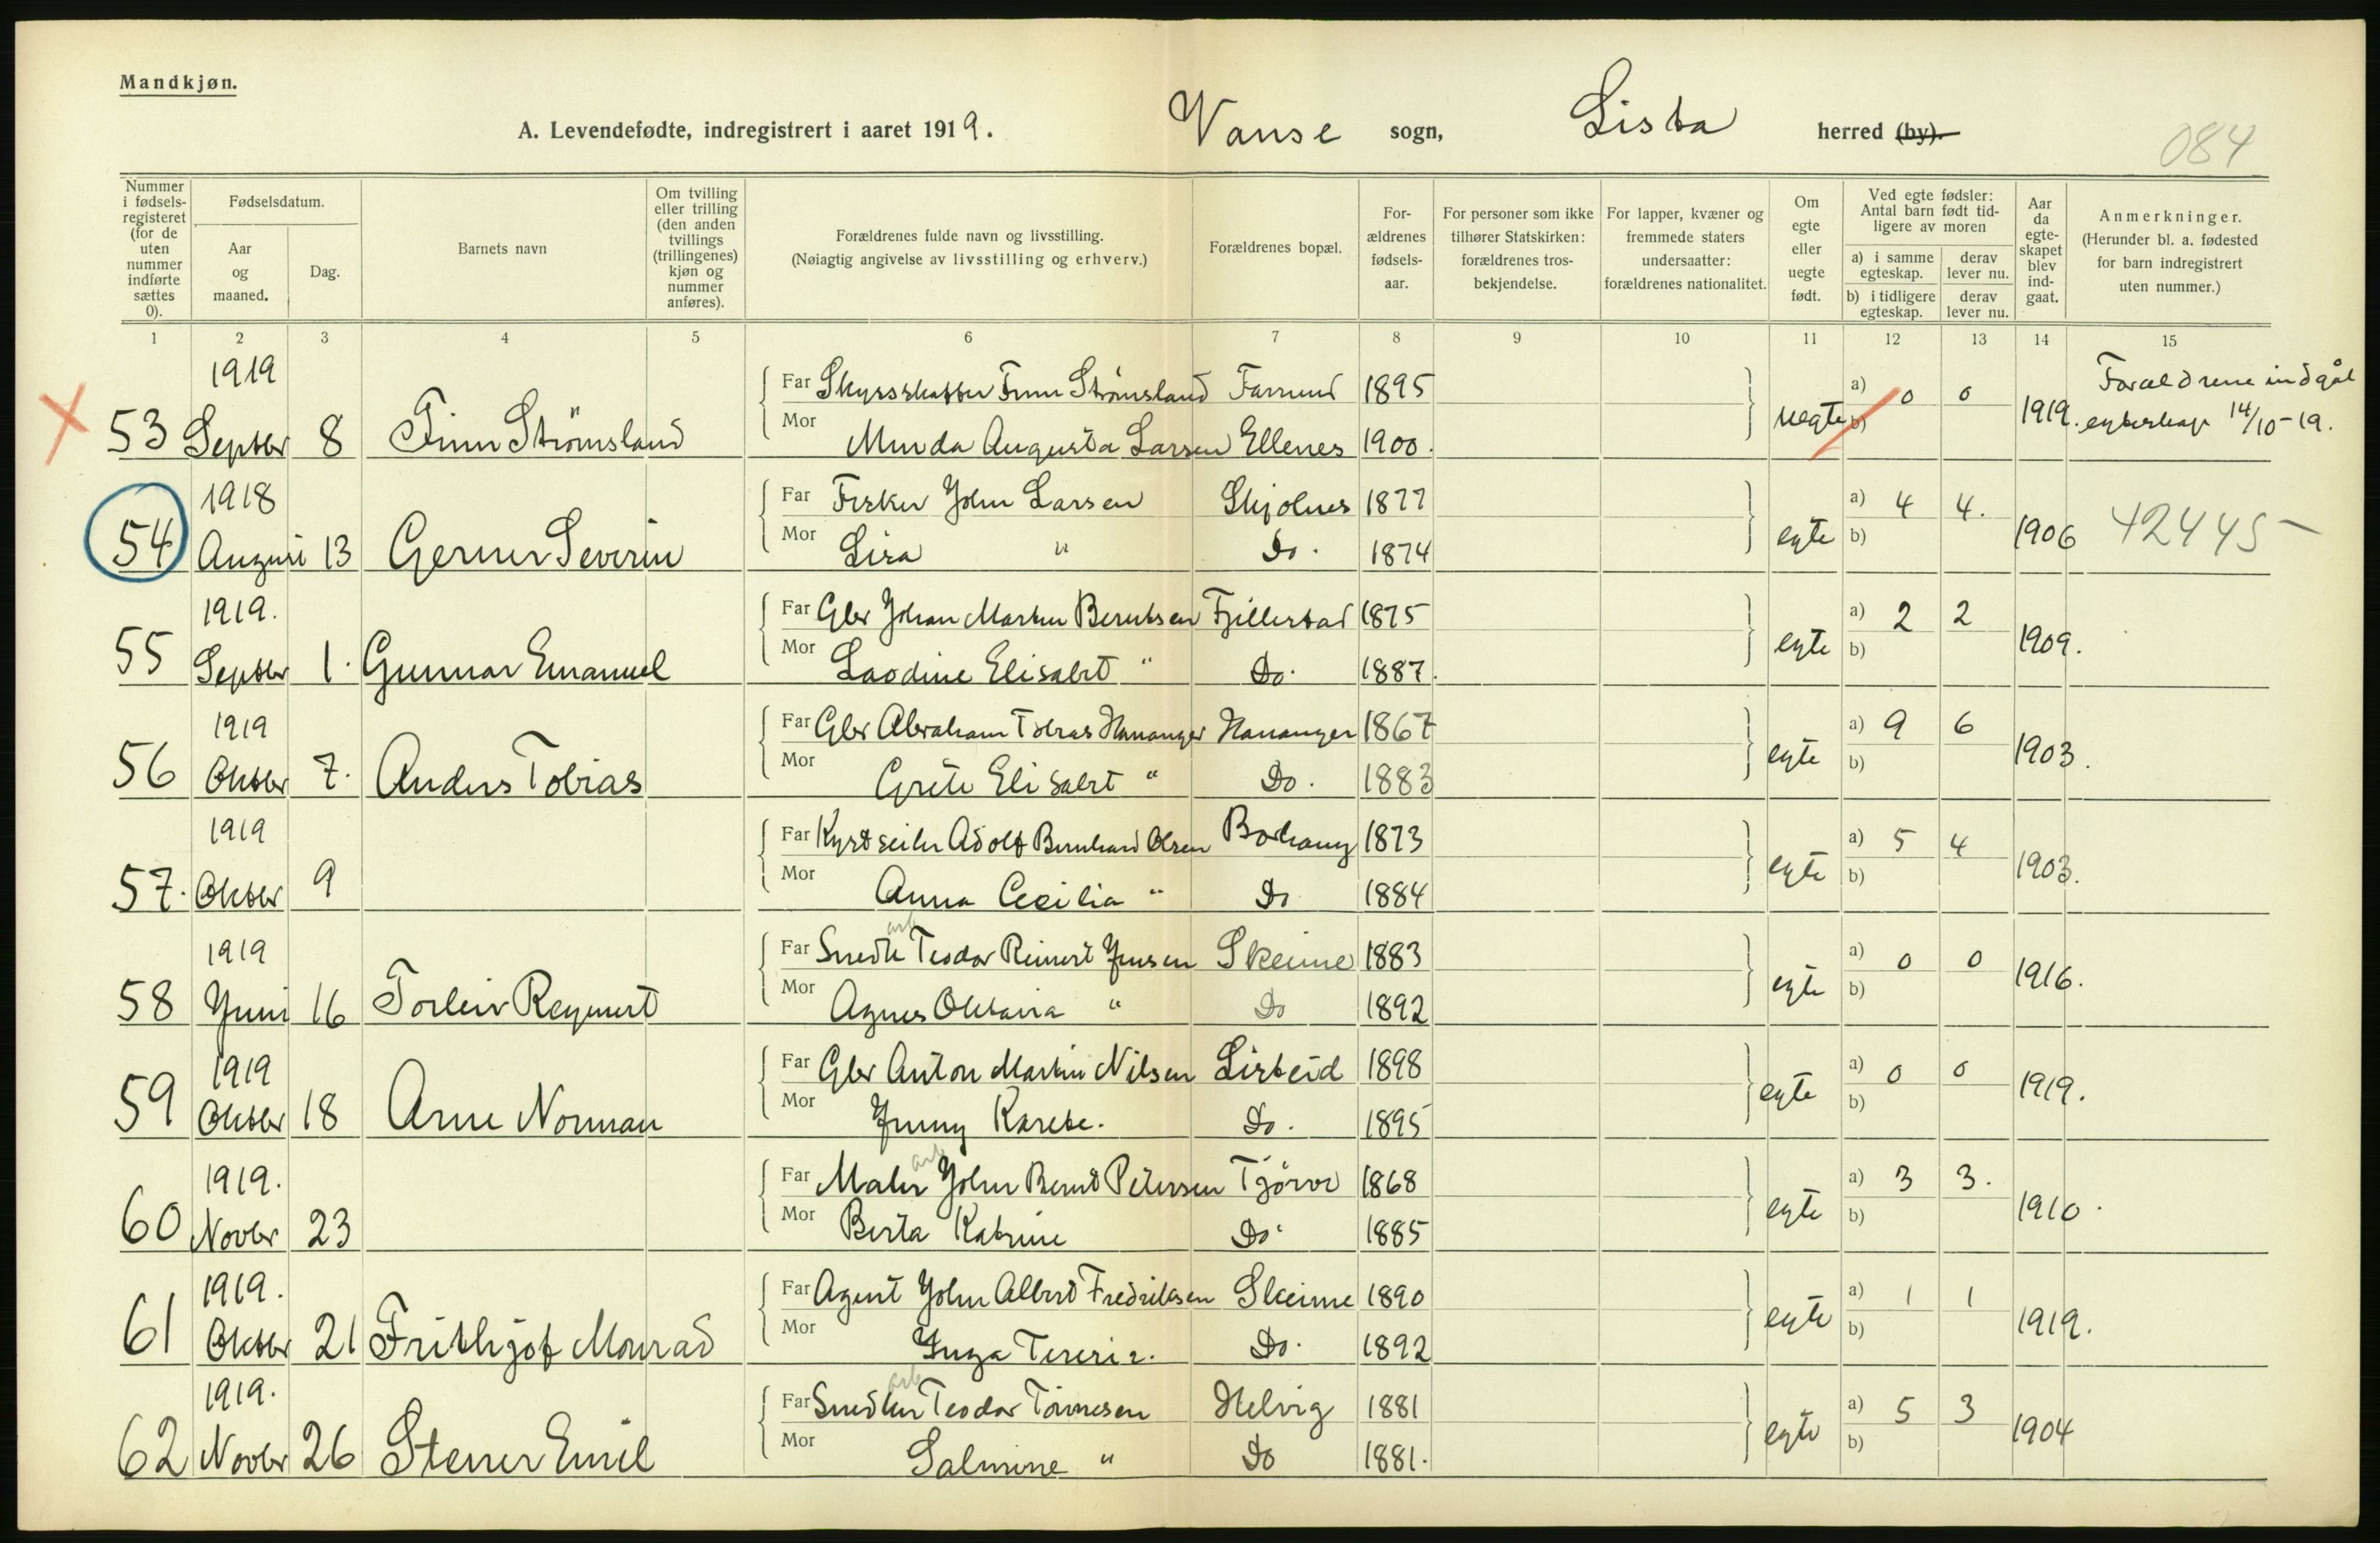 Mandkjøn.
A. Levendefødte, indregistrert i aaret 1919. Vanse sogn, Lista herred (by).
084
Nummer i fødsels-registeret (for de uten nummer indførte sættes 0).
Fødselsdatum.
Aar og maaned.
Dag.
Barnets navn
Om tvilling eller trilling (den anden tvillings (trillingenes) kjøn og nummer anføres).
Forældrenes fulde navn og livsstilling.
(Nøiagtig angivelse av livsstilling og erhverv.)
Forældrenes bopæl.
For-ældrenes fødsels-aar.
For personer som ikke tilhører Statskirken: forældrenes tros-bekjendelse.
For lapper, kvæner og fremmede staters undersaatter: forældrenes nationalitet.
Om egte eller uegte født.
Ved egte fødsler: Antal barn født tid-ligere av moren
a) i samme egteskap. derav lever nu.
b) i tidligere egteskap. derav lever nu.
Aar da egte-skapet blev ind-gaat.
Anmerkninger.
(Herunder bl. a. fødested for barn indregistrert uten nummer.)
1 2 3 4 5 6 7 8 9 10 11 12 13 14 15
1919 Far Finn Strømsland 1895 a) 0 0 Forældrene indgåt
53 Septbr 8 Finn Strømsland Mor Augusta Larsen Ellenes 1900. uegte b) 1919. egteskap 14/10-19.
1918 Far Fisker John Larsen Skjolnes 1877 a) 4 4.
54 August 13 Gerner Severin Mor Lisa " Do. 1874 egte b) 1906 42445-
1919. Far Gbr Johan Martin Berntsen 1875 a) 2 2
55 Septbr 1. Gunnar Emanuel Mor Elisabet " Do. 1887. egte b) 1909.
1919 Far Gbr Abraham Tobias Hananger Hananger 1867 a) 9 6
56 Oktbr 7. Anders Tobias Mor Grete Elisabet " Do. 1883 egte b) 1903.
1919 Far Kystseiler Adolf Bernhard Olsen Borhaug 1873 a) 5 4
57. Oktbr 9 Mor Anna Cecilia " Do 1884 egte b) 1903.
1919 Far Teodor Reinert Jensen Skeime 1883 a) 0 0
58 Juni 16 Torleiv Reymert Mor Agnes Oktavia " Do 1892 egte b) 1916.
1919 Far Gbr Anton Martin Nilsen Listeid 1898 a) 0 0
59 Oktbr 18 Arne Norman Mor Jenny Do. 1895 egte b) 1919.
1919. Far Maler arb John Bernt Petersen Tjørve 1868 a) 3 3.
60 Novbr 23 Mor Berta Katrine Do. 1885 egte b) 1910.
1919. Far Agent John Albert Fredriksen Skeime 1890 a) 1 1
61 Oktbr 21 Frithjof Monrad Mor Inga Do. 1892 egte b) 1919.
1919. Far Snedker arb Teodor Tønnesen Helvig 1881 a) 5 3
62 Novbr 26 Stener Emil Mor Salmine " Do 1881. egte b) 1904